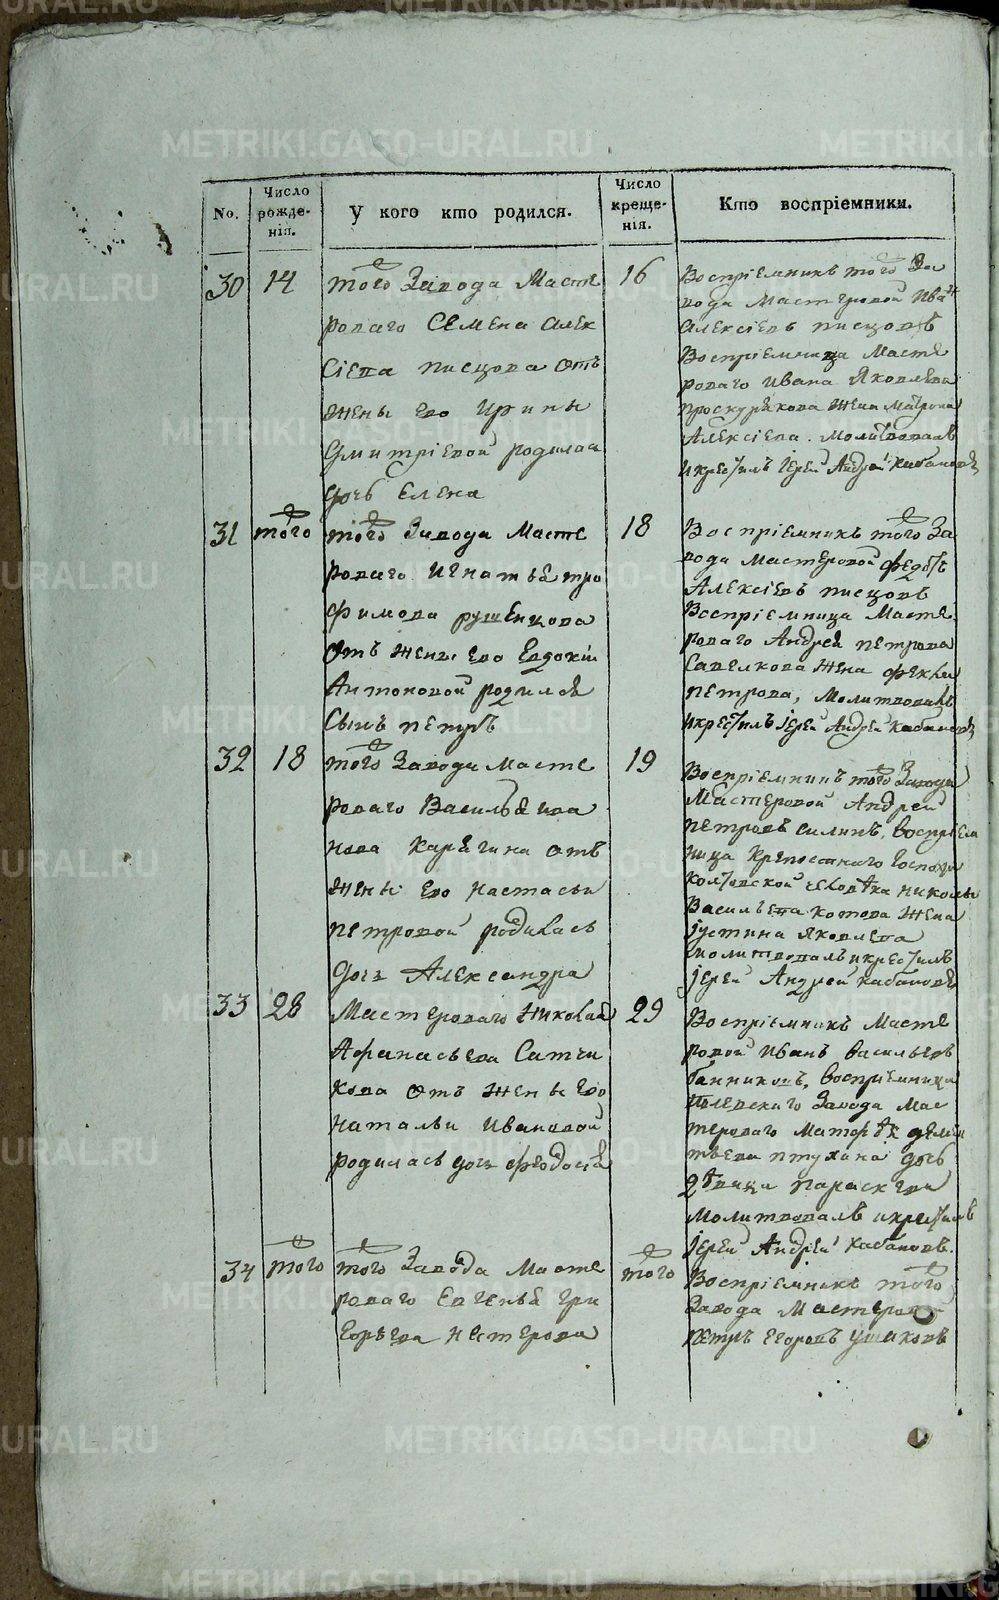 METRIKI.GASO-URAL.RU
No.
Число рожде-нія.
У кого кто родился.
Число креще-нія.
Кто воспріемники.
30
14
того Завода Масте
роваго Семена Алек
сіева писцова отъ
жены его Ирины
Дмитріевой родилася
дочь Елена
16
Воспріемникъ того За
вода мастеровой Иванъ
Алексіевъ писцовъ
Воспріемница Масте
роваго Ивана Яковлева
проскурякова жена Матрона
Алексіева. Молитвовалъ
и крестилъ іерей Андрей Кабановъ
31
того
того Завода Масте
роваго Игнатья тро
фимова рушенцова
отъ жены его Евдокіи
Антоновой родился
сынъ петръ
18
Воспріемникъ того За
вода мастеровой федотъ
Алексіевъ писцовъ
Воспріемница Масте
роваго Андрея петрова
Савелкова жена фекла
петрова, молитвовалъ
и крестилъ іерей Андрей Кабановъ
32
18
того Завода Масте
роваго Василья Ива
нова Карягина отъ
жены его настасьи
петровой родилась
дочь Александра
19
Воспріемникъ того Завода
Мастеровой Андрей
петровъ силинъ, воспріем
ница Крепостнаго Госпожи
Колтовской человѣка николы
Васильева котова жена
Іустина Яковлева
молитвовалъ и крестилъ
іерей Андрей кабановъ
33
28
Мастероваго николая
Афанасьева Сатчи
кова отъ жены его
натальи ивановой
родилась дочь феодосія
29
Воспріемникъ Масте
ровой иванъ васильевъ
банниковъ, воспріемница
полевскаго завода мас
тероваго
птухина дочь
дѣвица параскева
молитвовалъ и крестилъ
іерей Андрей кабановъ.
34
того
того Завода Масте
роваго Евгенья гри
горьева нестерова
того
Воспріемникъ того
Завода Мастеровой
петръ егоровъ ушаковъ